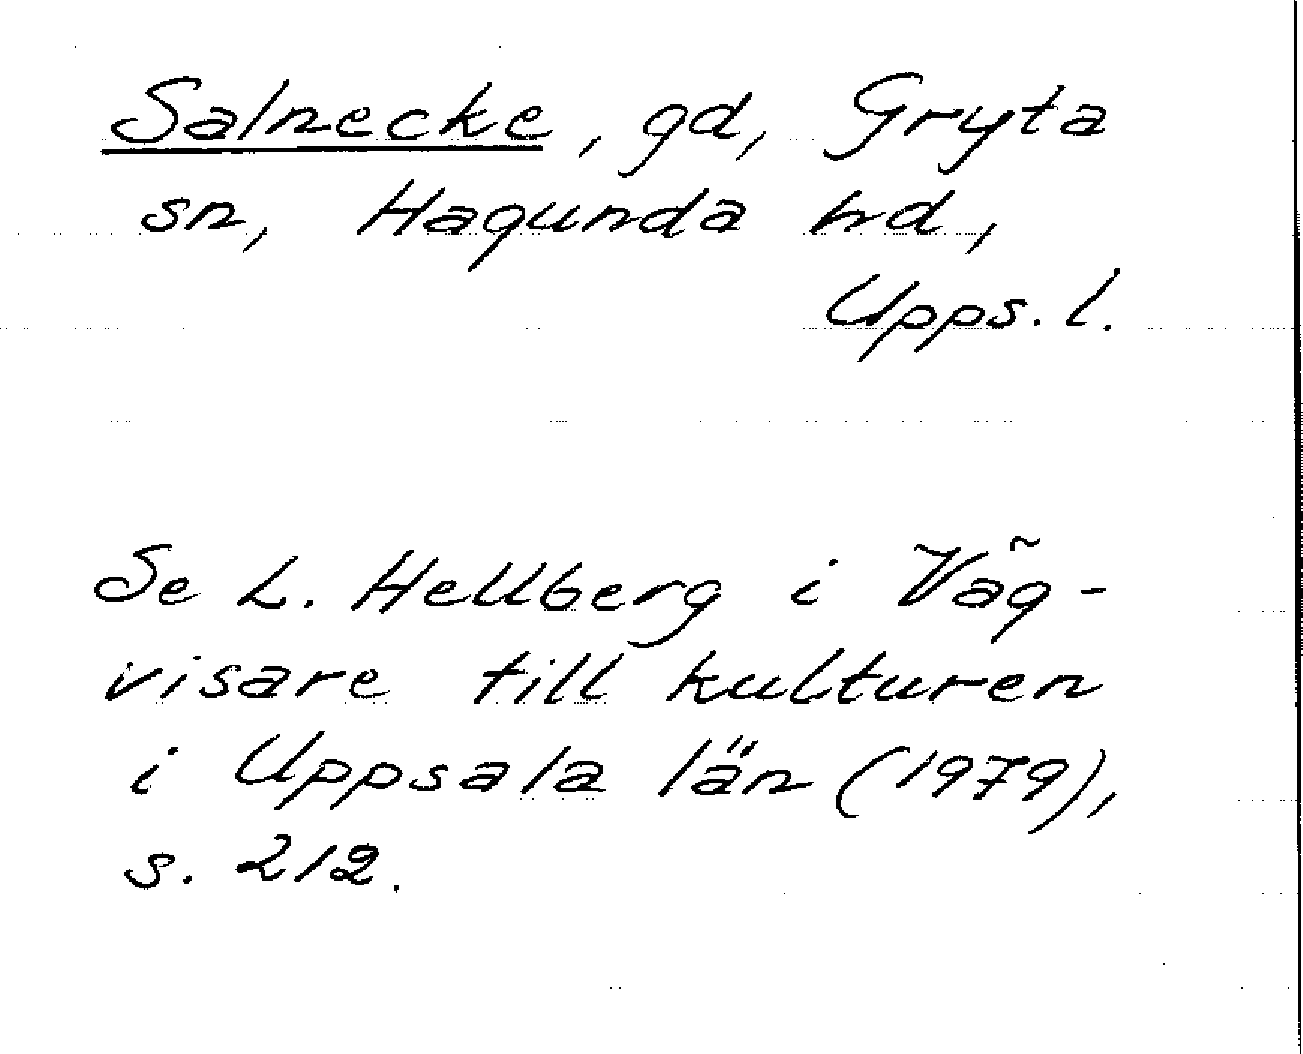 Salnecke, gd, Gryta
sn, Hagunda hd,
Upps. l.
Se L. Hellberg i Väg-
visare till kulturen
i Uppsala län (1979),
s. 212.